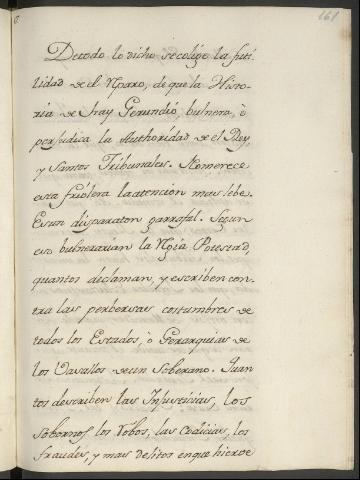 161
De todo lo dicho se colige la futi-
lidad de el Reparo, de que la Histo-
ria de Fray Gerundio, bulnera, ò
perjudica la Authoridad de el Rey,
y Santos Tribunales. No merece
esta friolera la atencion mas lebe.
Es un disparaton garrafal. Segun
eso bulnerarian la Regia Potestad,
quantos declaman, y escriben con-
tra las perbersas costumbres de
todos los Estados, ò Gerarquias de
los Vasallos de un Soberano. Quan
tos describen las Injusticias, los
Sobornos los Robos, las Codicias, los
fraudes, y mas delitos en que hierve